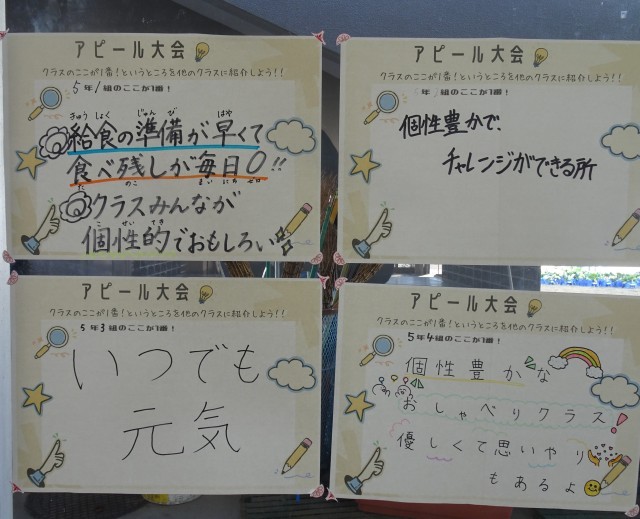 アピール大会
クラスのここが1番！というところを他のクラスに紹介しよう！！
5年1組のここが1番！
給食の準備が早くて
食べ残しが毎日0!!
クラスみんなが
個性的でおもしろい
アピール大会
クラスのここが1番！というところを他のクラスに紹介しよう！！
年 組のここが1番！
個性豊かで、
チャレンジができる所
アピール大会
クラスのここが1番！というところを他のクラスに紹介しよう！！
5年3組のここが1番！
いつでも
元気
アピール大会
クラスのここが1番！というところを他のクラスに紹介しよう！！
5年4組のここが1番！
個性豊かな
おしゃべりクラス！
優しくて思いやり
もあるよ